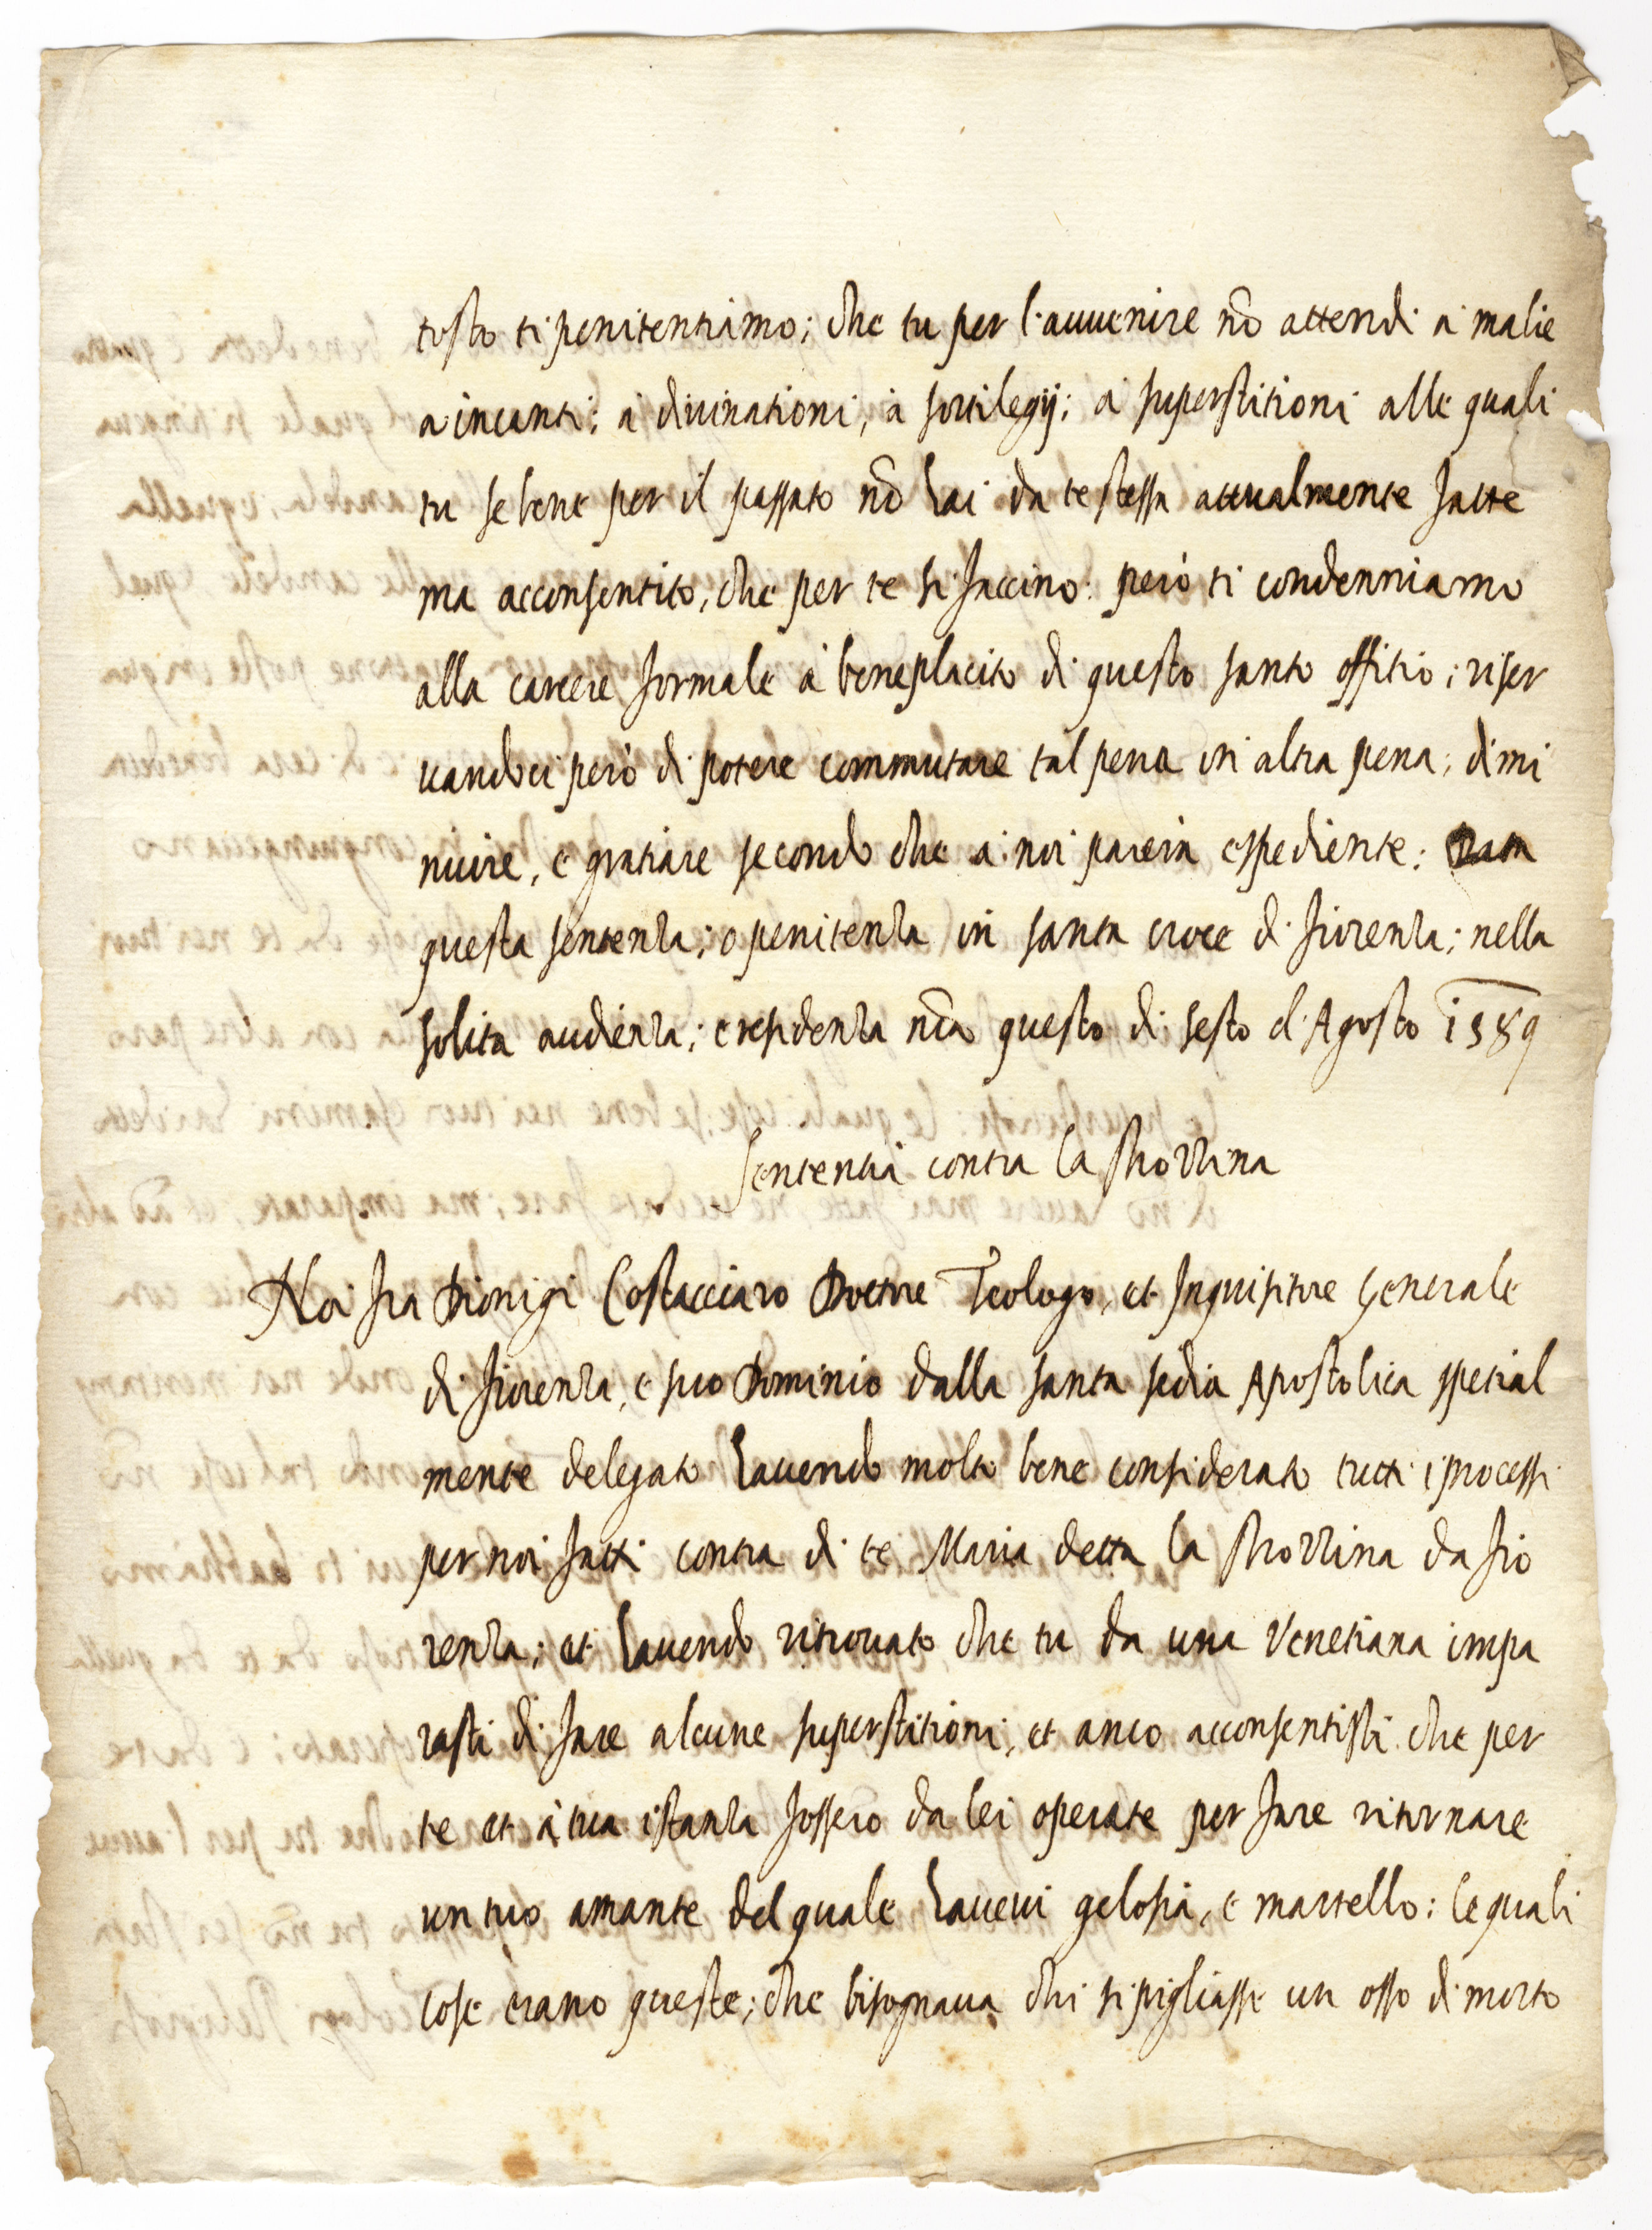 tosto ti penitentiamo; che tu per l'auuenire nõ attendi a malie
a incanti; à diuinationi, à sortilegij; à superstitioni alle quali
tu se bene per il passato nõ hai da te stessa attualmente fatte
ma acconsentito, che per te si faccino: però ti condenniamo
alla carcere formale à beneplacito di questo santo offitio; riser
uandoci però di potere commutare tal pena in altra pena, dimi
nuire, e gratiare secondo che a noi pareria espediente: Data
questa sentenza; o penitenza in santa croce di fiorenza; nella
solita audienza; e residenza nr̃a questo di sesto d'Agosto 1589
Sententia contra la strozzina
Noi fra Dionigi Costacciaro Dottore Teologo, et Inquisitore Generale
di fiorenza, e suo Dominio dalla santa sedia Apostolica spetial
mente delegato hauendo molto bene considerato tutti i processi
per noi fatti contra di te Maria detta la strozzina da fio
renza; et hauendo ritrouato che tu da una Venetiana impa
rasti di fare alcune superstitioni, et anco acconsentisti che per
te et à tua istanza fossero da lei operate per fare ritornare
un tuo amante del quale haueui gelosia, e martello: le quali
cose erano queste; che bisognaua chi si pigliasse un osso di morto